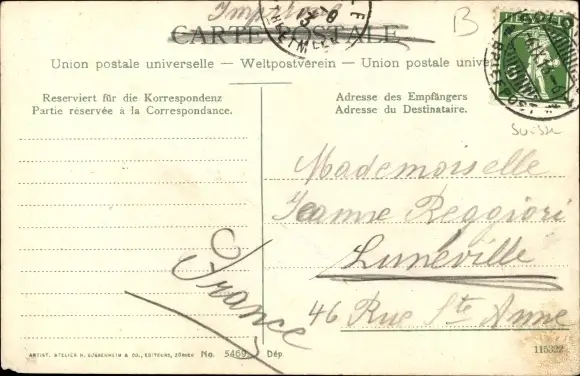 Imprimé
CARTE POSTALE
B
Union postale universelle — Weltpostverein — Union postale
Reserviert für die Korrespondenz
Partie réservée à la Correspondance.
Adresse des Empfängers
Adresse du Destinataire.
Suisse
Mademoiselle
Jeanne Reggiori
Lunéville
46 Rue Ste Anne
France
ARTIST. ATELIER H. GUGGENHEIM & CO., EDITEURS, ZÜRICH No. 5469 Dép.
115322